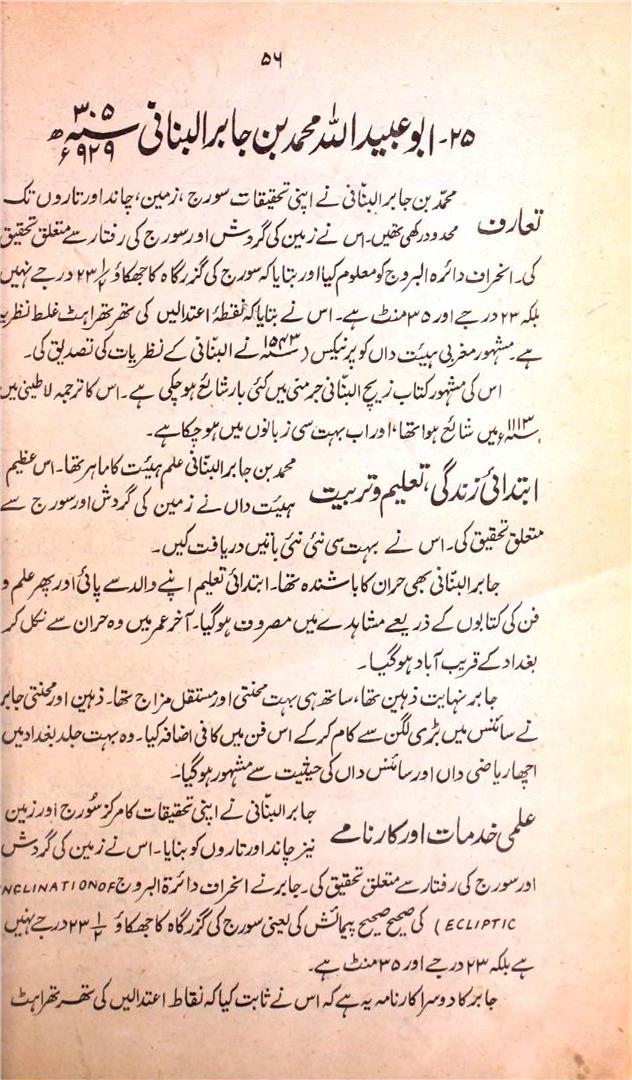 ۵۶
۲۵۔ ابو عبید اللہ محمد بن جابر البنانی سنہ ۳۰۵ھ ۹۲۹ء
تعارف محمد بن جابر البتّانی نے اپنی تحقیقات سورج، زمین، چاند اور تاروں تک
محدود رکھی تھیں۔ اس نے زمین کی گردش اور سورج کی رفتار سے متعلق تحقیق
کی۔ انحراف دائرہ البروج کو معلوم کیا اور بتایا کہ سورج کی گزر گاہ کا جھکاؤ ۲۳ ۱/۲ درجے نہیں
بلکہ ۲۳ درجے اور ۳۵ منٹ ہے۔ اس نے بتایا کہ نقطۂ اعتدالیں کی تھرتھراہٹ غلط نظریہ
ہے۔ مشہور مغربی ہیئت داں کوپرنیکس (سنہ ۱۵۴۳ء نے البتانی کے نظریات کی تصدیق کی۔
اس کی مشہور کتاب زیچ البتّانی جرمنی میں کئی بار شائع ہو چکی ہے۔ اس کا ترجمہ لاطینی میں
سنہ ۱۱۱۳ء میں شائع ہوا تھا، اور اب بہت سی زبانوں میں ہو چکا ہے۔
ابتدائی زندگی، تعلیم و تربیت محمد بن جابر البتانی علم ہیئت کا ماہر تھا۔ اس عظیم
ہیئت داں نے زمین کی گردش اور سورج سے
متعلق تحقیق کی۔ اس نے بہت سی نئی نئی باتیں دریافت کیں۔
جابر البتانی بھی حران کا باشندہ تھا۔ ابتدائی تعلیم اپنے والد سے پائی اور پھر علم و
فن کی کتابوں کے ذریعے مشاہدے میں مصروف ہو گیا۔ آخر عمر میں وہ حران سے نکل کر
بغداد کے قریب آباد ہو گیا۔
جابر نہایت ذہین تھا، ساتھ ہی بہت محنتی اور مستقل مزاج تھا۔ ذہین اور محنتی جابر
نے سائنس میں بڑی لگن سے کام کر کے اس فن میں کافی اضافہ کیا۔ وہ بہت جلد بغداد میں
اچھا ریاضی داں اور سائنس داں کی حیثیت سے مشہور ہو گیا۔
علمی خدمات اور کارنامے جابر البتّانی نے اپنی تحقیقات کا مرکز سُورج اور زمین
نیز چاند اور تاروں کو بنایا۔ اس نے زمین کی گردش
اور سورج کی رفتار سے متعلق تحقیق کی۔ جابر نے انحراف دائرۃ البروج NCLINATION OF
ECLIPTIC) کی صحیح صحیح پیمائش کی یعنی سورج کی گزر گاہ کا جھکاؤ ۲۳ ۱/۲ درجے نہیں
ہے بلکہ ۲۳ درجے اور ۳۵ منٹ ہے۔
جابر کا دوسرا کارنامہ یہ ہے کہ اس نے ثابت کیا کہ نقاط اعتدالیں کی تھرتھراہٹ